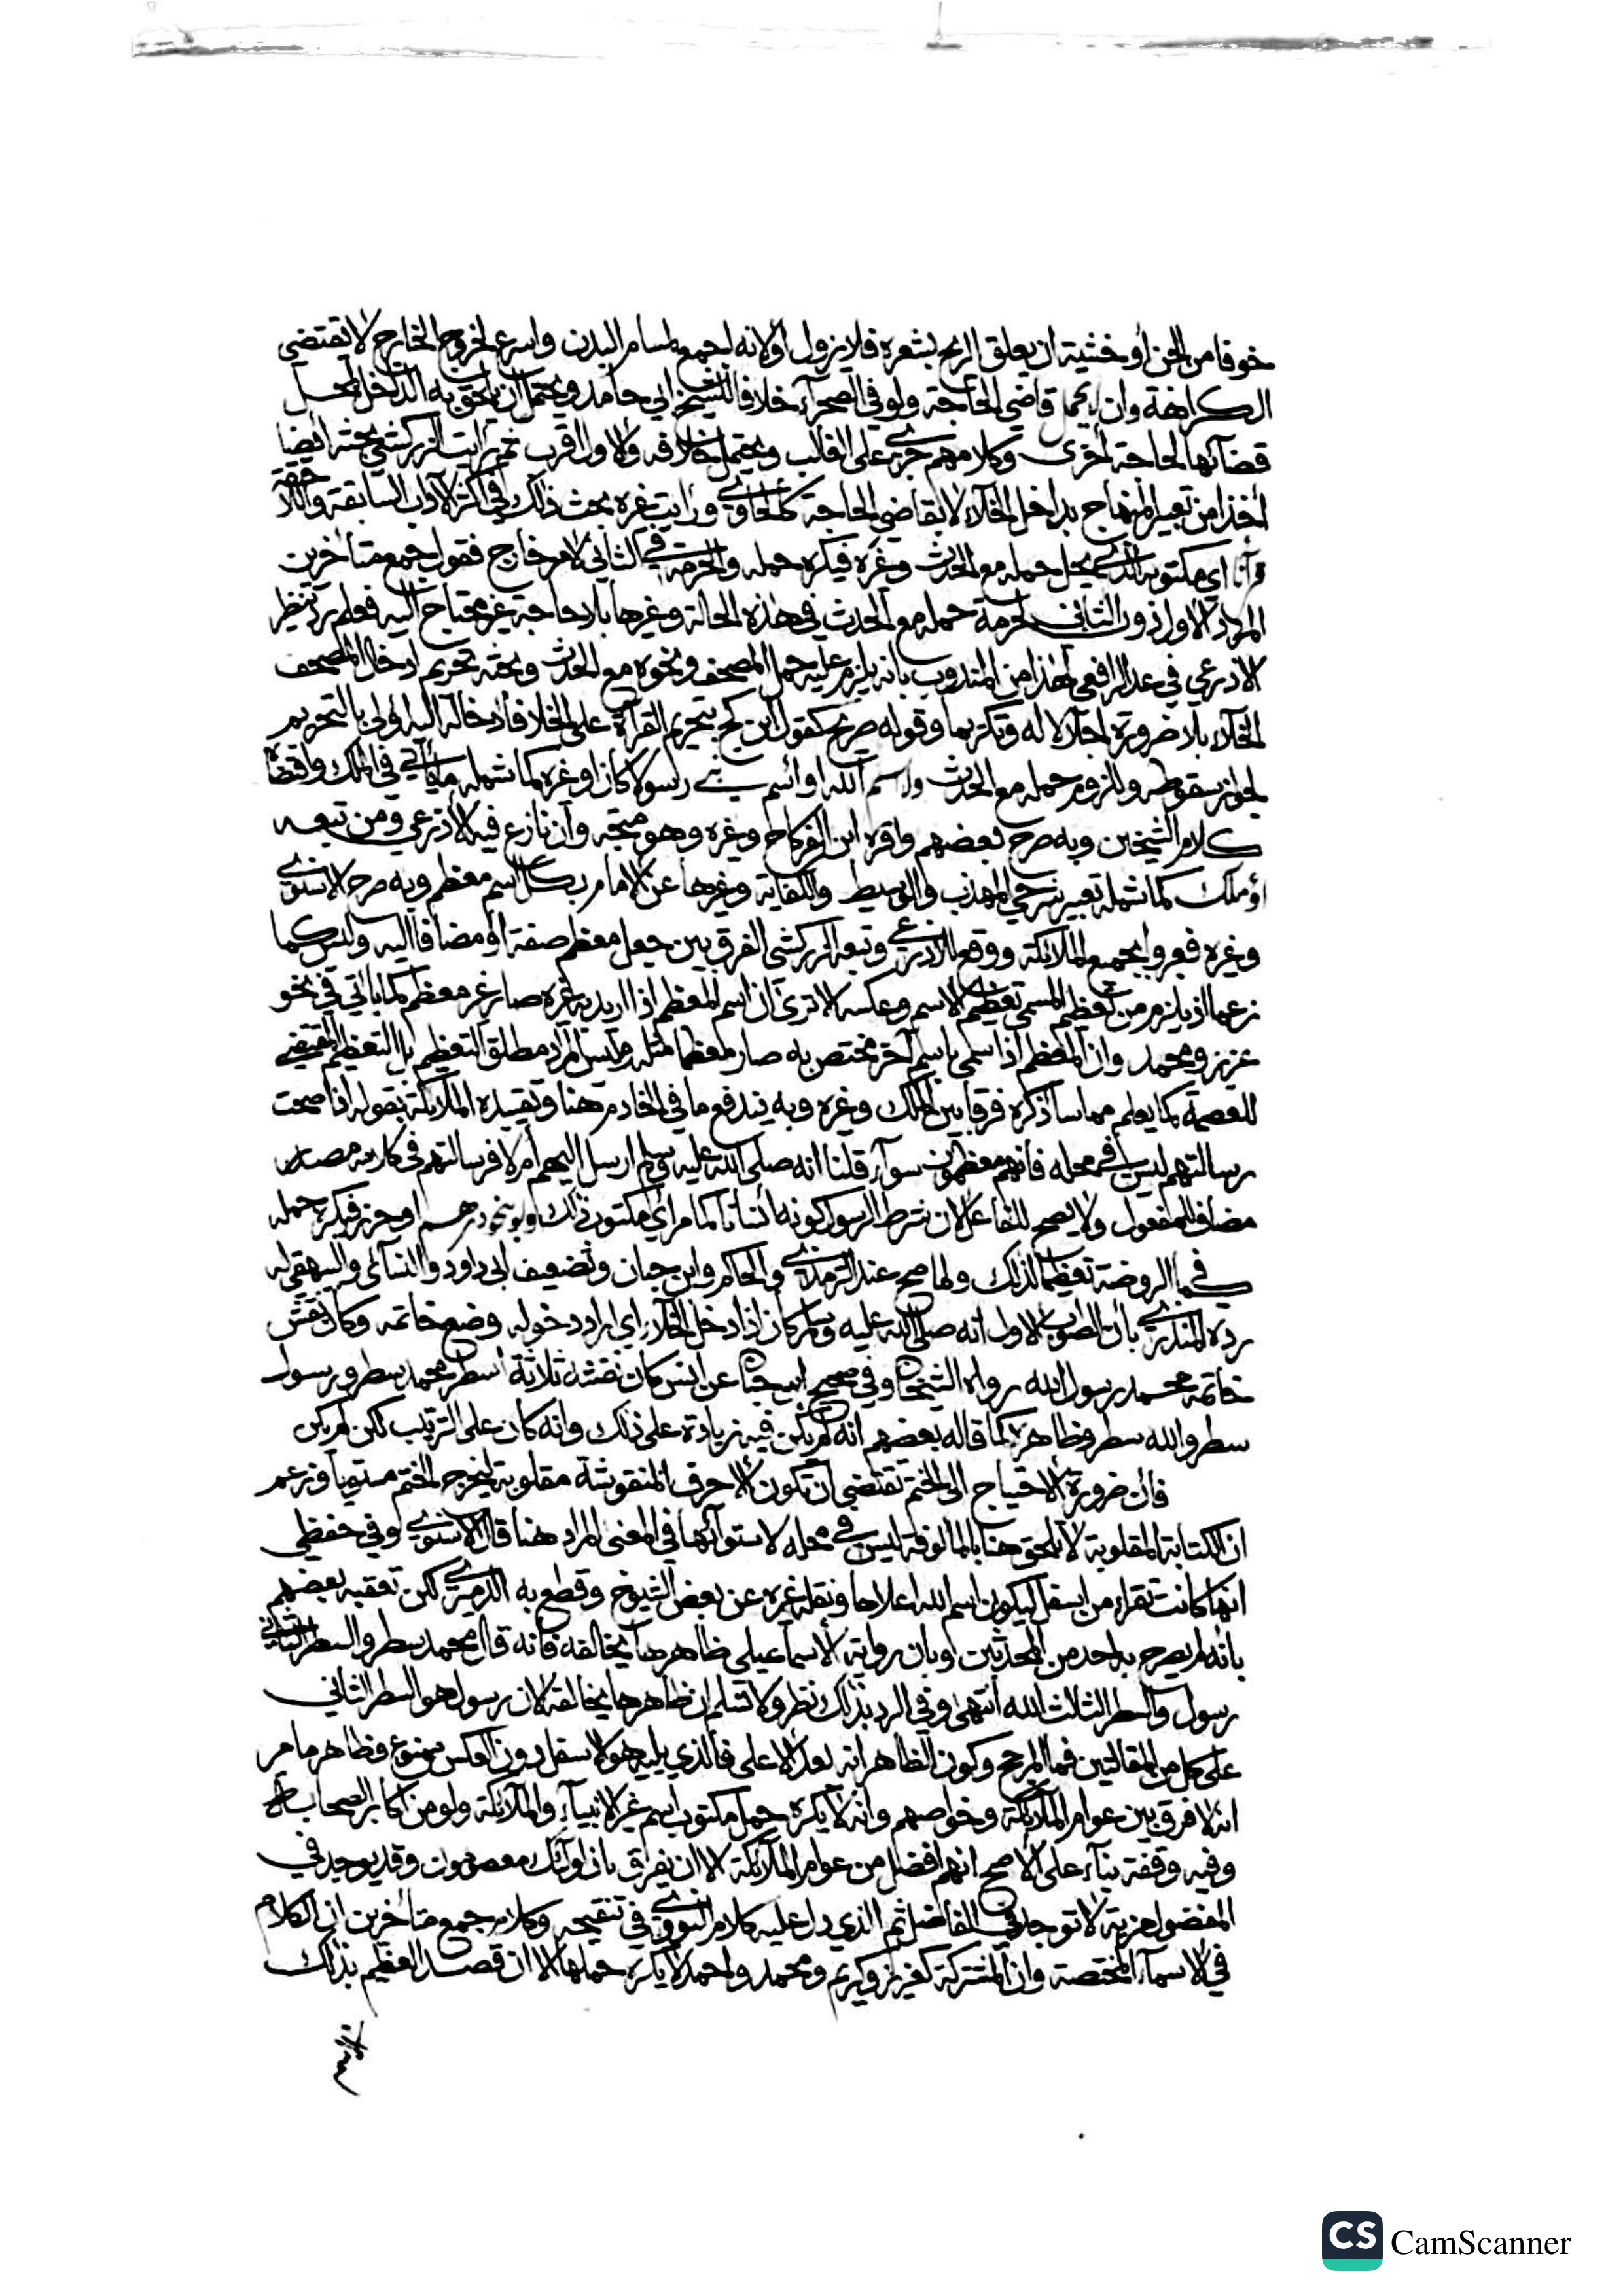 خوفا من الجن أو خشية ان يعلق الريح بشعره فلا يزول أو لانه اجمع لمسام البدن واسرع لخروج الخارج لا يقتضي
الكراهة وان يحمل قاضي الحاجة ولو في الصحرآء خلافا للشيخ ابي حامد ويحتمل ان يلحق به الداخل لمحل
قضآئها لحاجة أخرى وكلامهم جرى على الغالب ويحتمل خلافه والاول اقرب ثم رايت الزركشي بحثه أيضا
أخذا من تعبير المنهاج بداخل الخلآء لا بقاضي الحاجة كالحاوي ورايت غيره بحث ذلك في اكثر الآداب السابقة والآتية
قرآنا اي مكتوبه الذي يحل حمله مع الحدث وغيره فيكره حمله والحرمة في الثاني لامر خارج فقول جمع متأخرين
المراد الاول دون الثاني لحرمة حمله مع الحدث في هذه الحالة وغيرها بلا حاجة غير محتاج اليه فعلم رد تنظير
الاذرعي في عد الرافعي لهذا من المندوب بانه يلزم عليه حمل المصحف ونحوه مع الحدث وبحثه تحريم ادخال المصحف
الخلآء بلا ضرورة اجلالا له وتكريما وقوله صريح كقول ابن كج بتحريم القرآءة على الخلا فادخاله اليه اولى بالتحريم
لجواز سقوطه ولزوم حمله مع الحدث واسم الله او اسم نبي رسولا كان او غيره كما شمله ما يأتي في الملك واقتضاه
كلام الشيخين وبه صرح بعضهم واقره ابن الفركاح وغيره وهو متجه وان نازع فيه الأذرعي ومن تبعه
أو ملك كما شمله تعبير شرحي المهذب والوسيط والكفاية وغيرها عن الامام بكل اسم معظم وبه صرح الاسنوي
وغيره فعبروا بجميع الملائكة ووقع للاذرعي وتبعه الزركشي الفرق بين جعل معظم صفة أو مضافا اليه وليس كما
زعما اذ يلزم من تعظيم المسمى تعظيم الاسم وعكسه الا ترى ان اسم المعظم اذا اريد به غيره صار غير معظم كما ياتي في نحو
عزيز ومحمد وان المعظم اذا سمي باسم آخر مختص به صار معظما مثله وليس المراد مطلق التعظيم بل التعظيم المقتضي
للعصمة كما يعلم مما ساذكره فرقا بين الملك وغيره وبه يندفع ما في الخادم هنا وتقييده الملائكة بقوله اذا صحت
رسالتهم ليس في محله فانهم معظمون سوآء قلنا انه صلى الله عليه وسلم ارسل اليهم أم لا فرسالتهم في كلامه مصدر
مضاف للمفعول ولا يصح للفاعل لان شرط الرسول كونه انسانا كما مر اي مكتوب ذلك ولو بنحو درهم او حرز فيكره حمله
كما في الروضة تعظيما لذلك ولما صح عند الترمذي والحاكم وابن حبان وتضعيف ابي داود والنسآئي والبيهقي له
رده المنذري بأن الصواب الاول انه صلى الله عليه وسلم كان اذا دخل الخلآء اي اراد دخوله وضع خاتمه وكان نقش
خاتمه محمد رسول الله رواه الشيخان وفي صحيح ابن حبان عن انس كان نقشه ثلاثة أسطر محمد سطر ورسول
سطر والله سطر وظاهره كما قاله بعضهم انه لم يكن فيه زيادة على ذلك وانه كان على الترتيب لكن لم يكن
فان ضرورة الاحتياج الى الختم تقتضي ان تكون الاحرف المنقوشة مقلوبة ليخرج الختم مستويا وزعم
ان الكتابة المقلوبة لا تلحق هنا بالمالوفة ليس في محله لاستوآئهما في المعنى المراد هنا قال الاسنوي وفي حفظي
انها كانت تقرا من اسفل ليكون اسم الله اعلاها ونقله غيره عن بعض الشيوخ وقطع به الدميري لكن تعقبه بعضهم
بانه لم يصرح به احد من المحدثين وبان رواية الاسماعيلي ظاهرها يخالفه فانه قال محمد سطر والسطر الثاني
رسول والسطر الثالث الله انتهى وفي الرد بذلك نظر ولا نسلم ان ظاهرها يخالفه لان رسول هو السطر الثاني
على كل من المقالتين فما المرجح وكون الظاهر انه بعد الاعلى فالذي يليه هو الاسفل دون العكس ممنوع وظاهر ما مر
انه لا فرق بين عوام الملائكة وخواصهم وانه لا يكره حمل مكتوب اسم غير الانبيآء والملآئكة ولو من اكابر الصحابة
وفيه وقفة بنآء على الاصح انهم افضل من عوام الملآئكة الا ان يفرق بان اولئك معصومون وقد يوجد في
المفضول مزية لا توجد في الفاضل ثم الذي دل عليه كلام النووي في تنقيحه وكلام جمع متأخرين ان الكلام
في الاسمآء المختصة وان المشتركة كعزيز وكريم ومحمد واحمد لا يكره حملها الا ان قصد العظيم بذلك
CS CamScanner